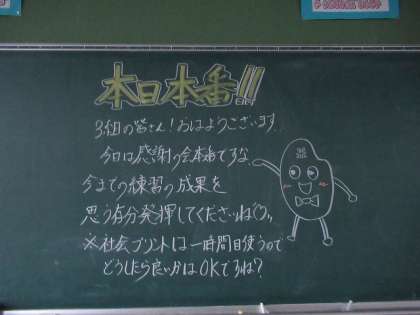 本日本番!!!
3組の皆さん!おはようございます。
今日は感謝の会本番ですな。
今までの練習の成果を
思う存分発揮してくださいね
※社会プリントは一時間目使うので
どうしたら良いかはOKですね?